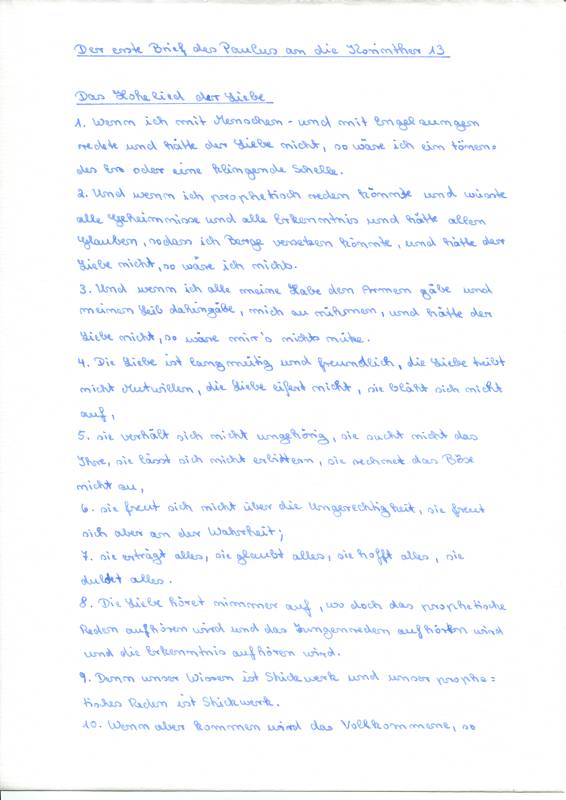 Der erste Brief des Paulus an die Korinther 13
Das Hohelied der Liebe
1. Wenn ich mit Menschen- und mit Engelzungen
redete und hätte der Liebe nicht, so wäre ich ein tönen=
des Erz oder eine klingende Schelle.
2. Und wenn ich prophetisch reden könnte und wüsste
alle Geheimnisse und alle Erkenntnis und hätte allen
Glauben, sodass ich Berge versetzen könnte, und hätte der
Liebe nicht, so wäre ich nichts.
3. Und wenn ich alle meine Habe den Armen gäbe und
meinen Leib dahingäbe, mich zu rühmen, und hätte der
Liebe nicht, so wäre mir's nichts nütze.
4. Die Liebe ist langmütig und freundlich, die Liebe treibt
nicht Mutwillen, die Liebe eifert nicht, sie bläht sich nicht
auf,
5. sie verhält sich nicht ungehörig, sie sucht nicht das
Ihre, sie lässt sich nicht erbittern, sie rechnet das Böse
nicht zu,
6. sie freut sich nicht über die Ungerechtigkeit, sie freut
sich aber an der Wahrheit;
7. sie erträgt alles, sie glaubt alles, sie hofft alles, sie
duldet alles.
8. Die Liebe höret nimmer auf, wo doch das prophetische
Reden aufhören wird und das Zungenreden aufhören wird
und die Erkenntnis aufhören wird.
9. Denn unser Wissen ist Stückwerk und unser prophe=
tisches Reden ist Stückwerk.
10. Wenn aber kommen wird das Vollkommene, so